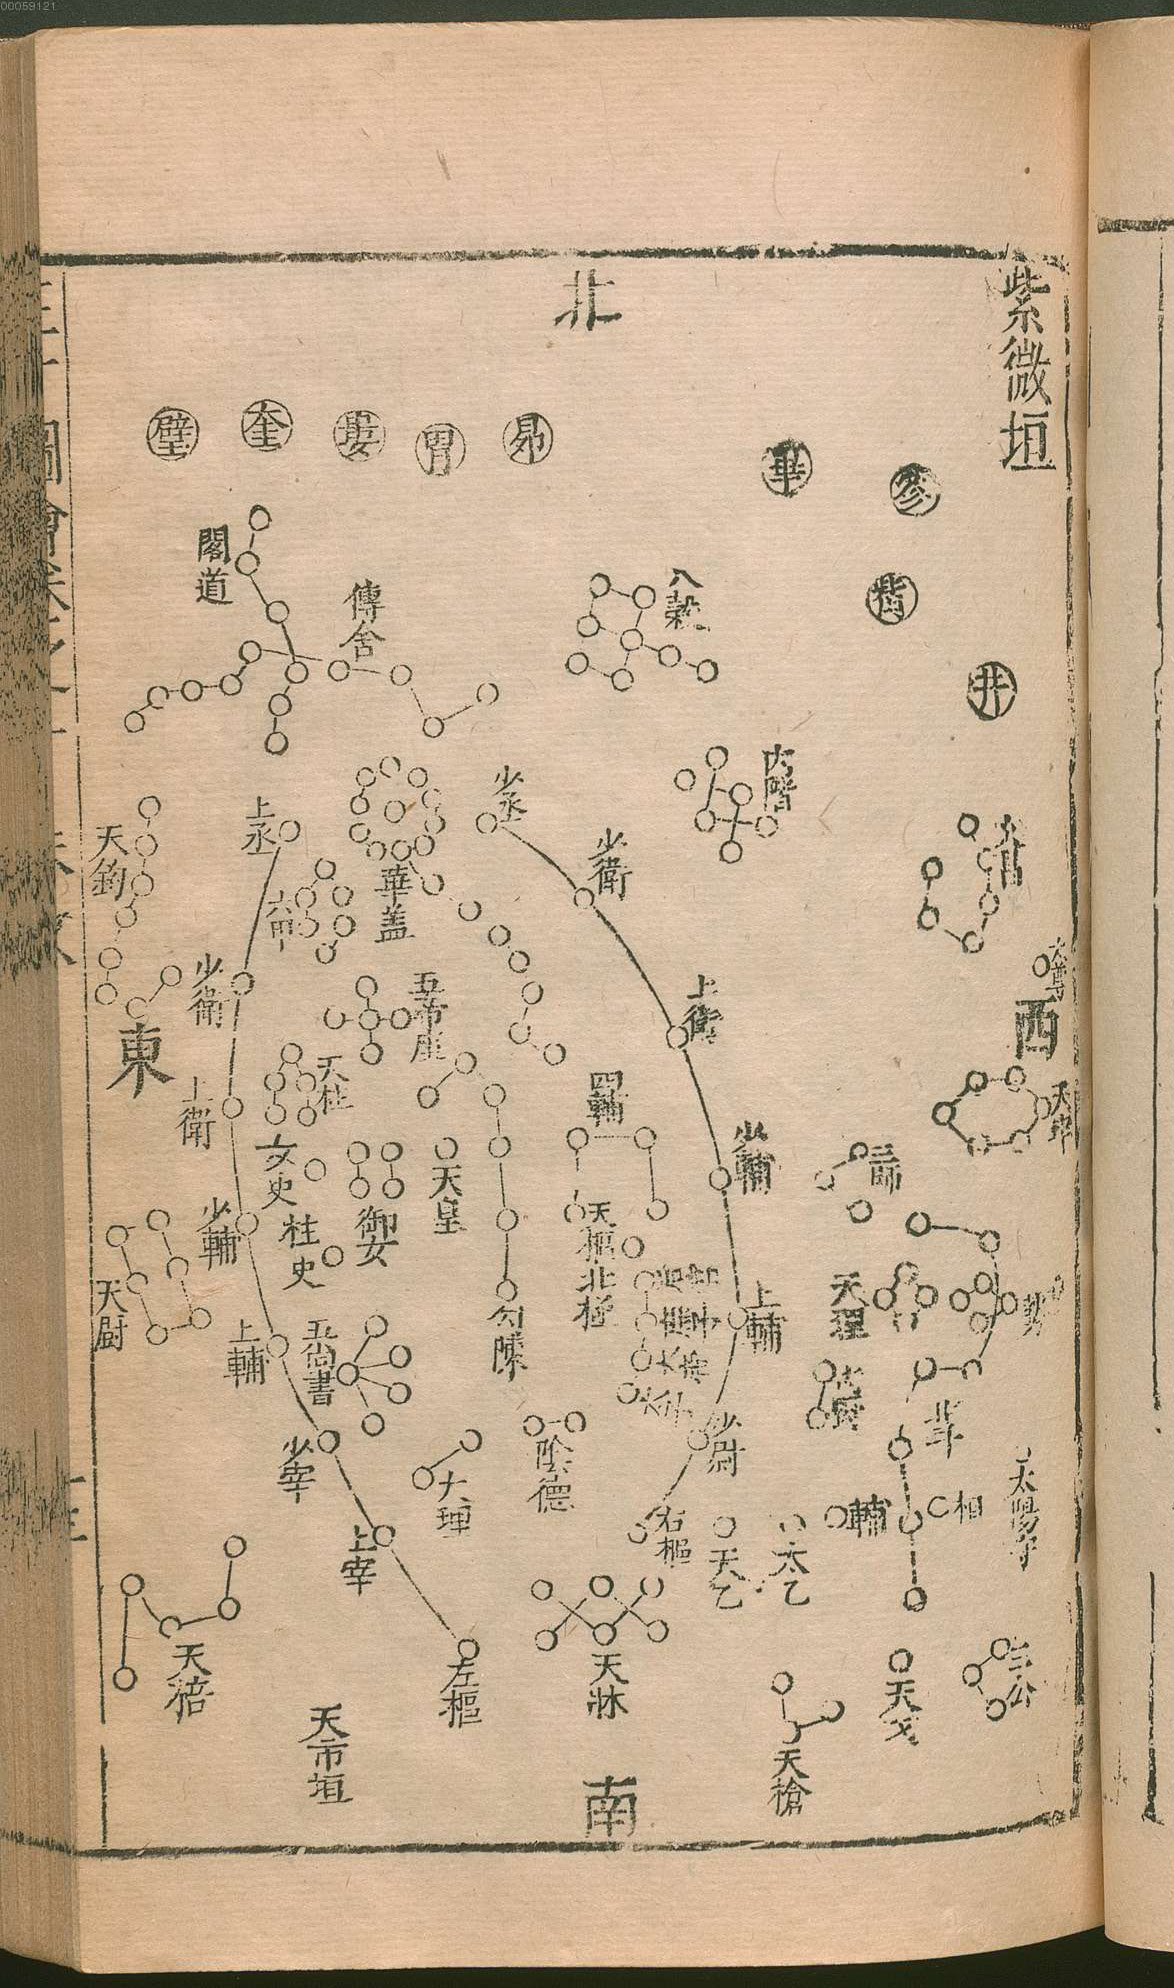 00059121
紫微垣
北
參
畢
昴
胃
婁
奎
壁
觜
井
閣道
傳舍
八穀
內階
少丞
上丞
天鉤
六甲
華盖
少衛
少衛
上衛
五帝座
西
東
天柱
上衛
四輔
少輔
三師
女史
天皇
御女
柱史
少輔
天樞北極
天理
上輔
天厨
上輔
五尚書
勾陳
少尉
北斗
少宰
大理
陰德
右樞
輔
相
太陽守
上宰
天乙
太乙
天棓
左樞
天牀
天戈
三公
天市垣
天槍
南